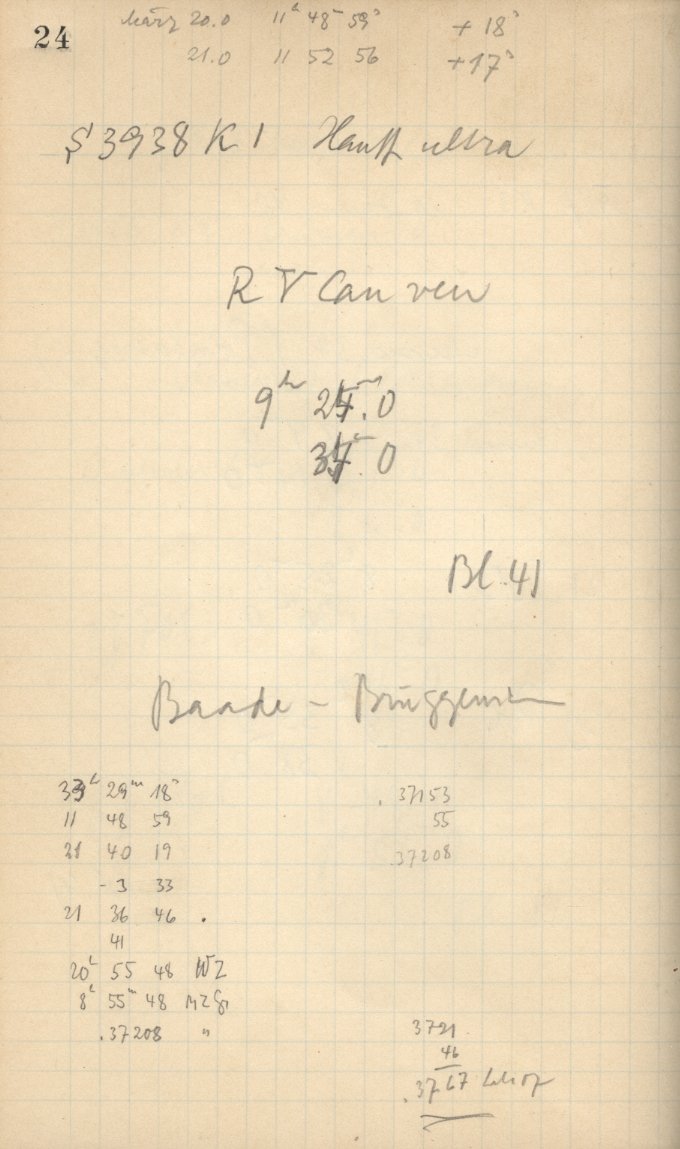 24
März 20.0 11h 48m 59s + 18s
21.0 11 52 56 +17s
S 3938 K 1 Hauff ultra
RV Can ven
9h 25m.0
35.0
Bl. 41
Baade - Brüggemann
33h 29m 18s
11 48 59
21 40 19
- 3 33
21 36 46 .
41
20h 55 48 WZ
8h 55m 48 MZGr
.37208 "
. 37153
55
37208
3721
46
.3767